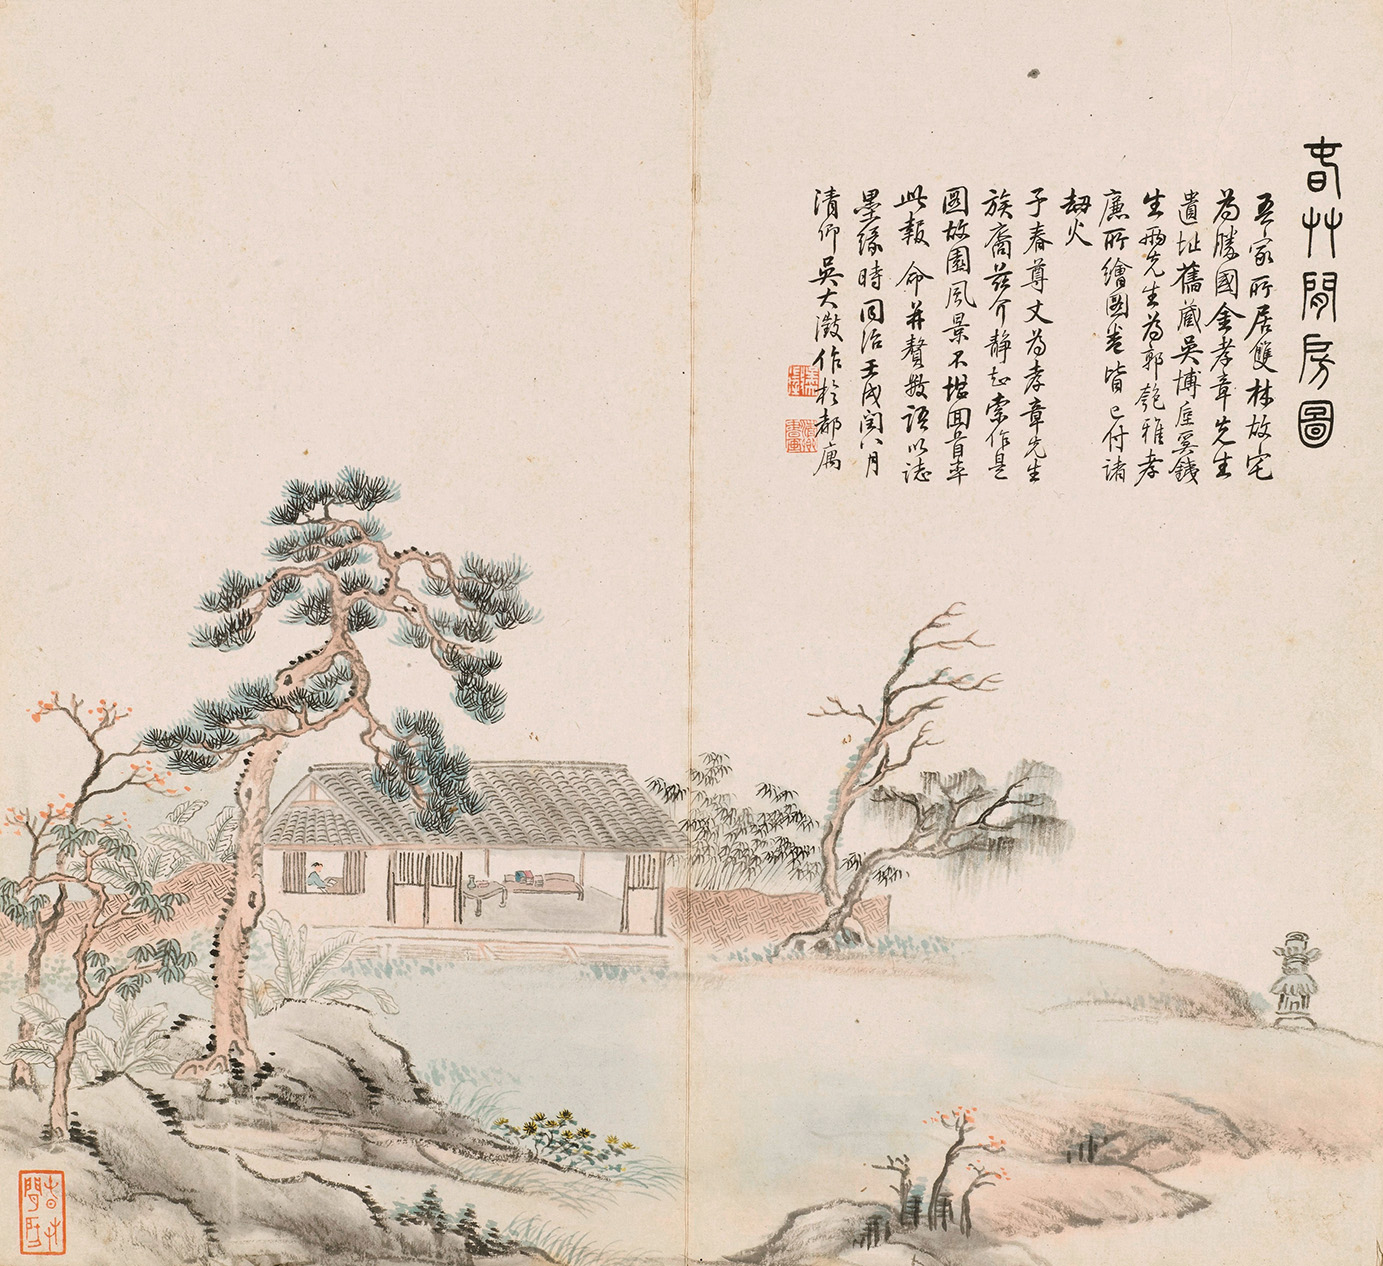 春艸閒房圖
吾家所居雙林故宅
為勝國金孝章先生
遺址舊藏吳博庭奚錢
生兩先生為郭匏雅孝
廉所繪圖卷皆已付諸
劫火
子春尊丈為孝章先生
族裔茲介靜知索作是
圖故園風景不堪回首率
此報 命并贅數語以誌
墨緣時同治壬戌閏八月
清仰吳大澂作於都寓
春艸閒房